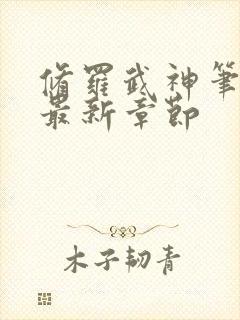 脩羅武神筆
最新章節
木子韧青